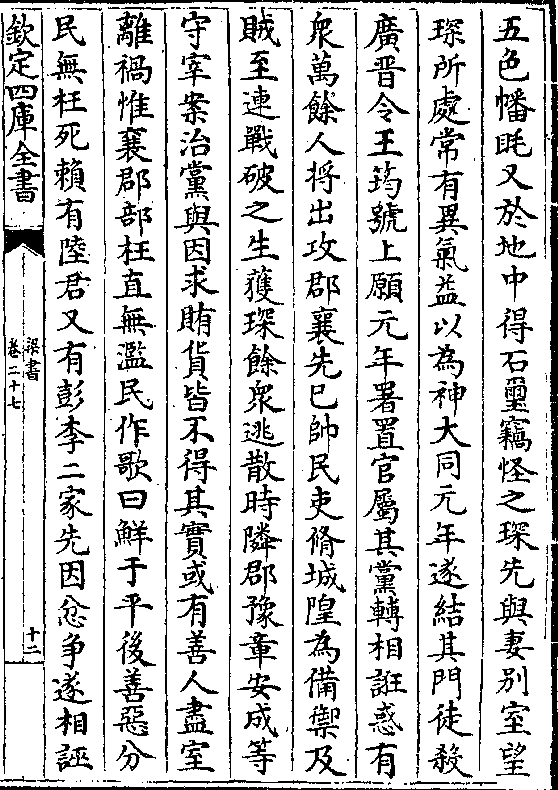 五色幡眊又於地中得石璽竊怪之琛先與妻别室望
琛所處常有異氣益以為神大同元年遂結其門徒殺
廣晉令王筠號上願元年署置官屬其黨轉相誑惑有
衆萬餘人將出攻郡襄先已帥民吏脩城隍為備禦及
賊至連戰破之生獲琛餘衆逃散時隣郡豫章安成等
守宰案治黨與因求賄貨皆不得其實或有善人盡室
離禍惟襄郡部枉直無濫民作歌曰鮮于平後善惡分
民無枉死賴有陸君又有彭李二家先因忿争遂相誣
欽定四庫全書
梁書
卷二十七
十二